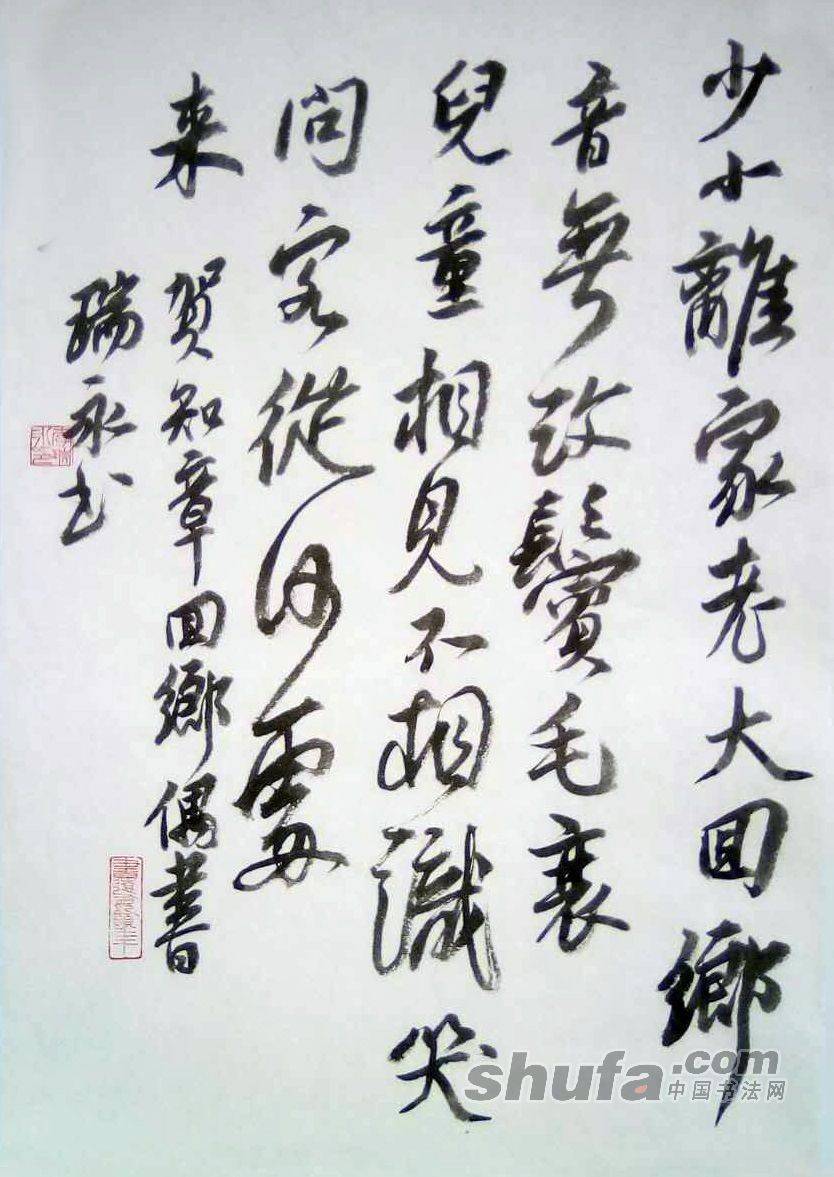 少小離家老大回鄉
音無改鬢毛衰
兒童相見不相識笑
問客從何處
来
賀知章回鄉偶書
瑞永书
shufa.com
中国书法网